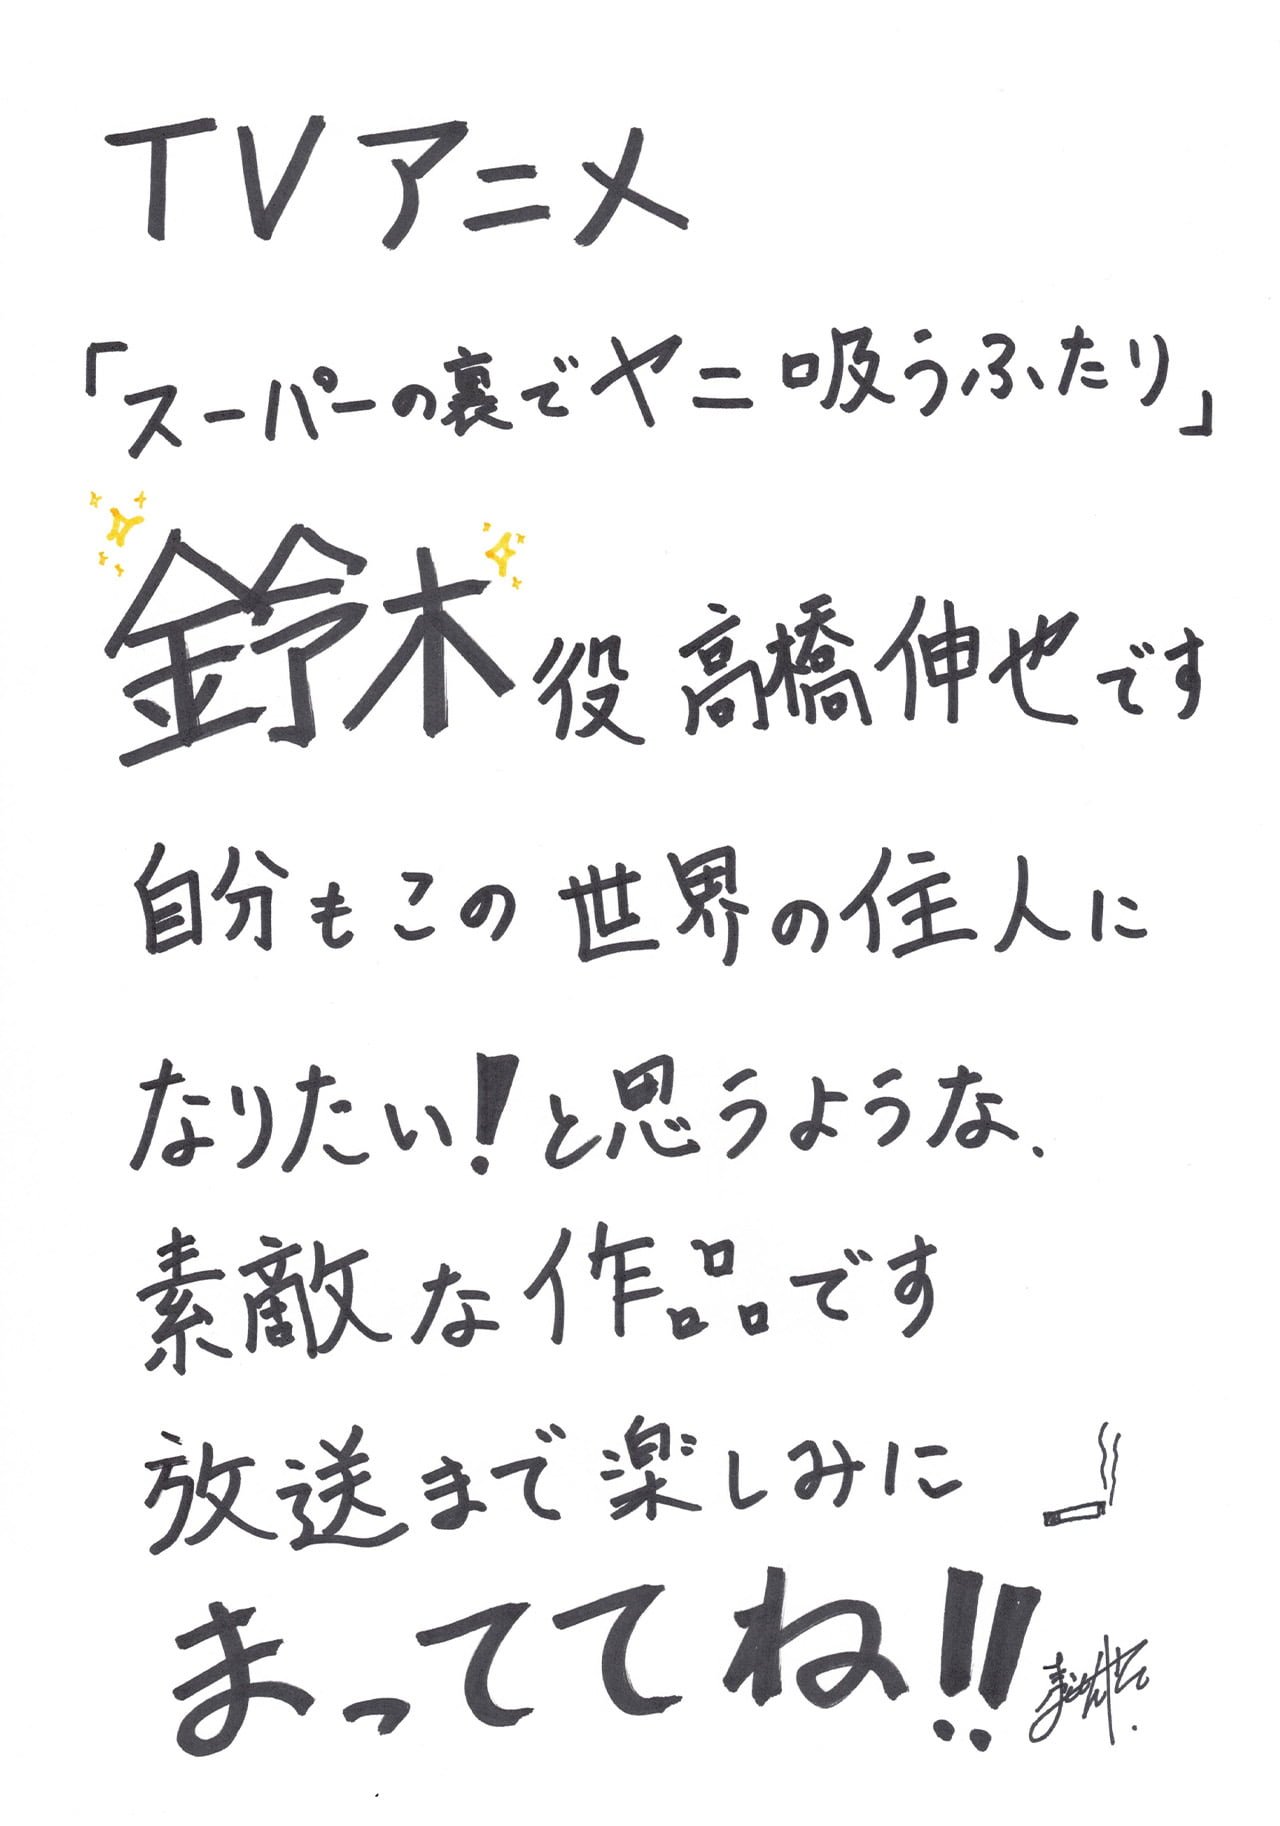 TVアニメ
「スーパーの裏でヤニ吸うふたり」
鈴木役 高橋伸也です
自分もこの世界の住人に
なりたい!と思うような、
素敵な作品です
放送まで楽しみに
まっててね!!